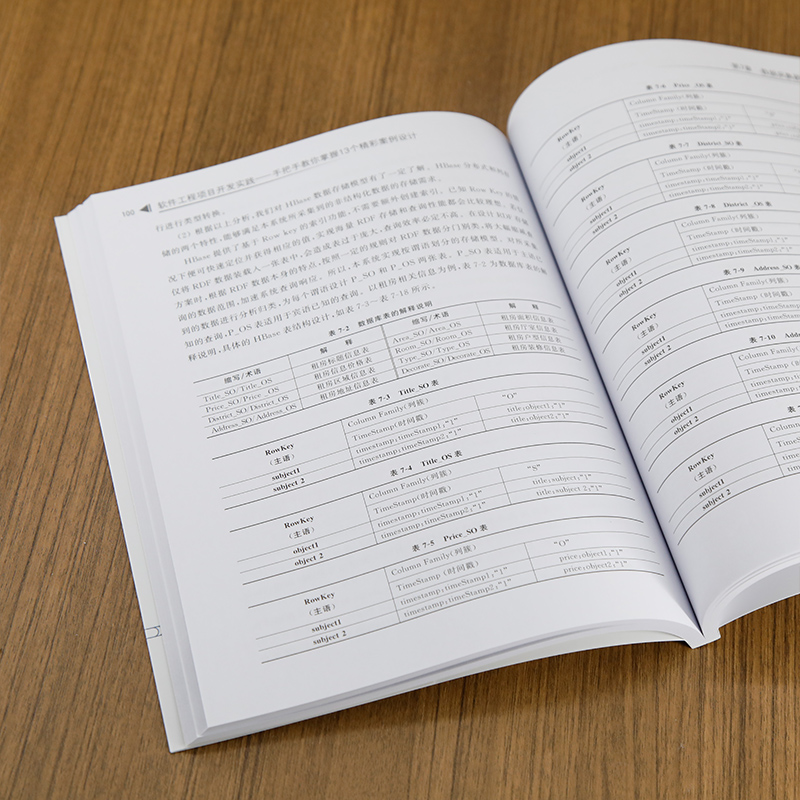 100 软件工程项目开发实践——手把手教你掌握13个精彩案例设计
行进行类型转换。
(2) 根据以上分析,我们对 HBase 数据存储模型有了一定了解。HBase 分布式和列存
储的两个特性,能够满足本系统所采集到的非结构化数据的存储需求。
HBase 提供了基于 Row key 的索引功能,不需要额外创建索引。已知 Row Key 的情
况下便可快速定位并获得相应的值,实现海量 RDF 存储和查询性能都会比较理想。若仅
仅将 RDF 数据装载入一张表中,会造成表过于庞大,查询效率必定不高。在设计 RDF 存储
方案时,根据 RDF 数据本身的特点,按照一定的规则对 RDF 数据分门别类,将大幅缩减查
询的数据范围,加速系统查询响应。所以,本系统实现按谓语划分的存储模型。对所采集
到的数据进行分析归类,为每个谓语设计 P_SO 和 P_OS 两张表。P_SO 表适用于主语已
知的查询,P_OS 表适用于宾语已知的查询。以租房相关信息为例,表 7-2 为数据库表的解
释说明,具体的 HBase 表结构设计,如表 7-3~表 7-18 所示。
表 7-2 数据库表的解释说明
缩写/术语 解 释 缩写/术语 解 释
Title_SO/Title_OS 租房标题信息表 Area_SO/Area_OS 租房面积信息表
Price_SO/Price _OS 租房信息价格表 Room_SO/Room_OS 租房厅室信息表
District_SO/District_OS 租房区域信息表 Type_SO/Type_OS 租房户型信息表
Address_SO/Address_OS 租房地址信息表 Decorate_SO/Decorate_OS 租房装修信息表
表 7-3 Title_SO 表
RowKey
(主语)
Column Family(列族) "O"
TimeStamp(时间戳)
subject1 timestamp:timeStamp1:"1" title:object1:"1"
subject 2 timestamp:timeStamp2:"1" title:object2:"1"
表 7-4 Title_OS 表
RowKey
(主语)
Column Family(列族) "S"
TimeStamp(时间戳)
object1 timestamp:timeStamp1:"1" title:subject:"1"
object 2 timestamp:timeStamp2:"1" title:subject2:"1"
表 7-5 Price_SO 表
RowKey
(主语)
Column Family(列族) "O"
TimeStamp (时间戳)
subject1 timestamp:timeStamp1:"1" price:object1:"1"
subject 2 timestamp:timeStamp2:"1" price:object2:"1"
表 7-6 Price _OS 表
RowKey
(主语)
Column Family(列族)
TimeStamp (时间戳)
object1 timestamp:timeStamp1:"1"
object 2 timestamp:timeStamp2:"1"
表 7-7 District_SO 表
RowKey
(主语)
Column Family(列族)
TimeStamp(时间戳)
subject1 timestamp:timeStamp1:"1"
subject 2 timestamp:timeStamp2:"1"
表 7-8 District_OS
RowKey
(主语)
Column Family(列族)
TimeStamp (时间戳)
object1 timestamp:timeStamp1:"1"
object 2 timestamp:timeStamp2:"1"
表 7-9 Address_SO
RowKey
(主语)
Column Family(列族)
TimeStamp(时间戳)
subject1 timestamp:timeStamp1:
subject 2 timestamp:timeStamp2:
表 7-10 Addre
RowKey
(主语)
Column Family(列
TimeStamp(时间戳
object1 timestamp:timeSta
object 2 timestamp:timeSta
表 7-11
RowKey
(主语)
Column Fami
TimeStamp(时
subject1 timestamp:ti
subject 2 timestamp: